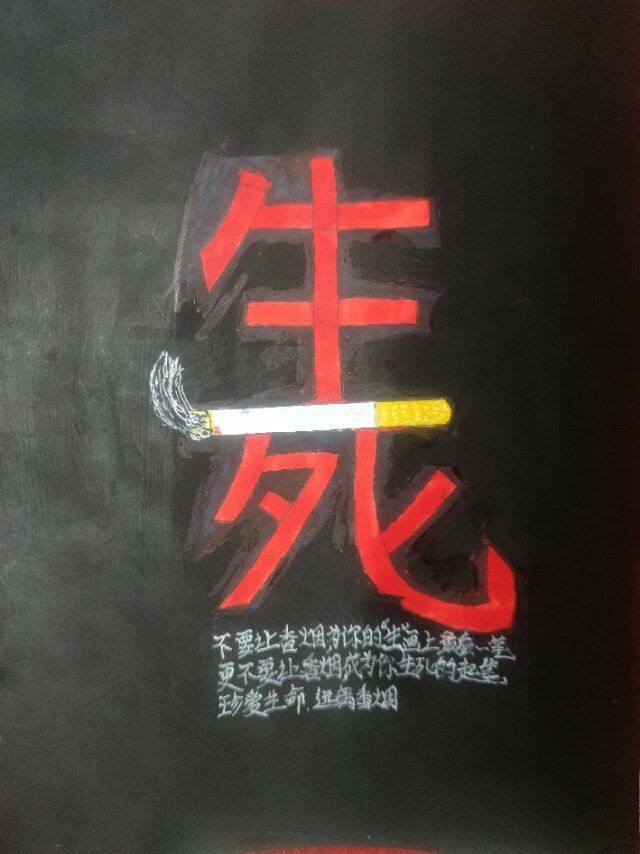 生
死
不要让香烟为你的"生"画上最后一笔
更不要让香烟成为你生死的起笔,
珍爱生命,远离香烟